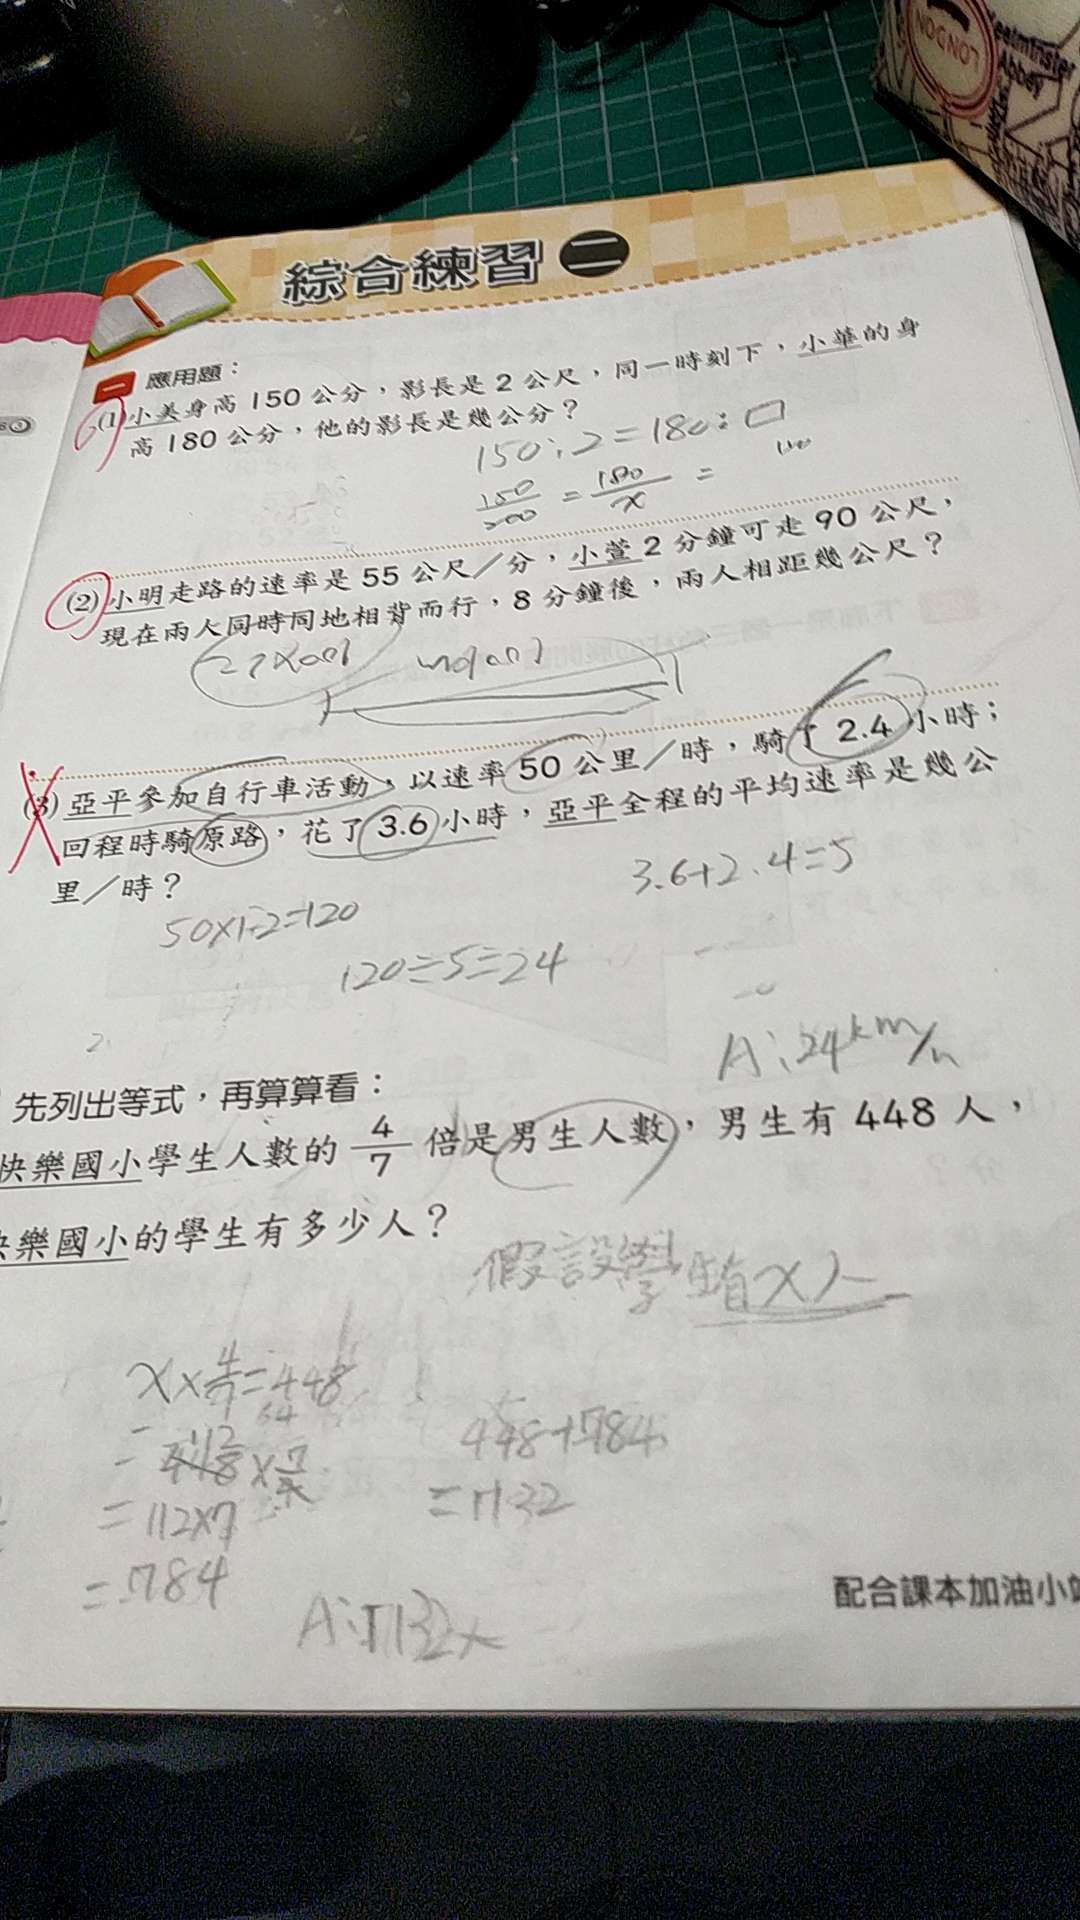 LONDON
Westminster
Abbey
綜合練習 二
一 應用題：
(1) 小美身高 150 公分，影長是 2 公尺，同一時刻下，小華的身
高 180 公分，他的影長是幾公分？
150:2=180:□
150/200 = 180/x =
(2) 小明走路的速率是 55 公尺／分，小萱 2 分鐘可走 90 公尺，
現在兩人同時同地相背而行，8 分鐘後，兩人相距幾公尺？
(3) 亞平參加自行車活動，以速率 50 公里／時，騎了 2.4 小時；
回程時騎原路，花了 3.6 小時，亞平全程的平均速率是幾公
里／時？
3.6+2.4=5
120÷5=24
A:24km/h
先列出等式，再算算看：
快樂國小學生人數的 4/7 倍是男生人數，男生有 448 人，
快樂國小的學生有多少人？
假設學生有x人
x×4/7=448
448+784
=112×7
=1132
=784
A:1132人
配合課本加油小